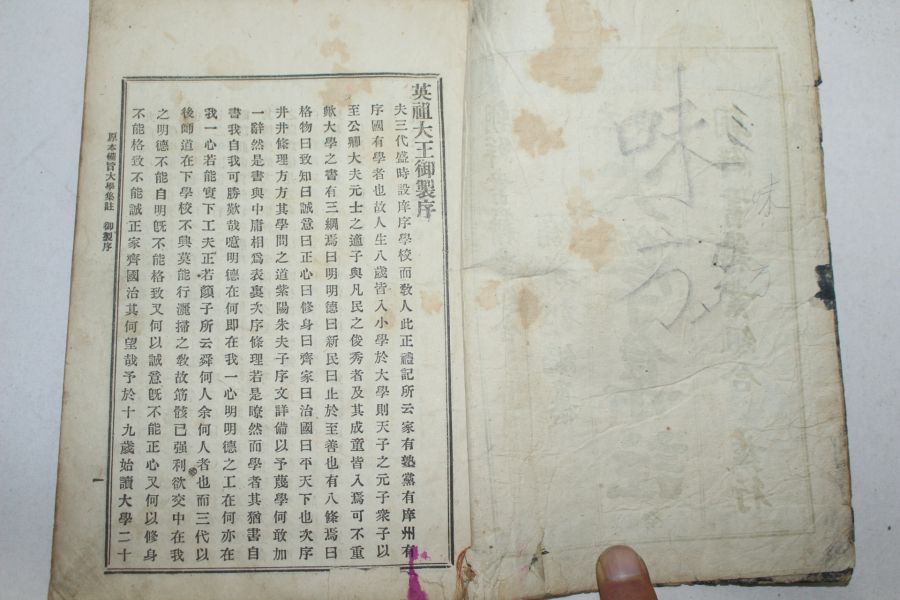 味方
味
英祖大王御製序
夫三代盛時設庠序學校而敎人此正禮記所云家有塾黨有庠州有
序國有學者也故人生八歲皆入小學於大學則天子之元子衆子以
至公卿大夫元士之適子與凡民之俊秀者及其成童皆入焉可不重
歟大學之書有三綱焉曰明明德曰新民曰止於至善也有八條焉曰
格物曰致知曰誠意曰正心曰修身曰齊家曰治國曰平天下也次序
井井條理方方其學問之道紫陽朱夫子序文詳備以予蔑學何敢加
一辭然是書與中庸相爲表裏次序條理若是瞭然而學者其猶書自
書我自我可勝歎哉噫明德在何即在我一心明明德之工在何亦在
我一心若能實下工夫正若顔子所云舜何人余何人者也而三代以
後師道在下學校不興莫能行灑掃之敎故筋骸已强利欲交中在我
之明德不能自明旣不能格致又何以誠意旣不能正心又何以修身
不能格致不能誠正家齊國治其何望哉予於十九歲始讀大學二十
原本備旨大學集註 御製序
一